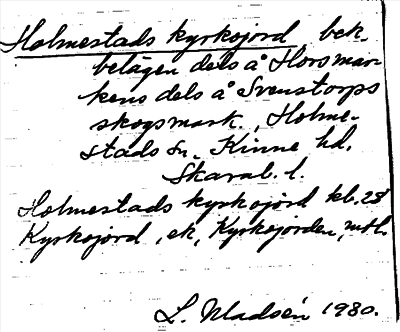 Holmestads kyrkojord bek.
belägen dels å Horsmar-
kens dels å Svenstorps
skogsmark, Holme-
stads sn. Kinne hd.
Skarab. l.
Holmestads kyrkojord kb. 28
Kyrkojord, ek, Kyrkojorden, mtl.
L. Madsén 1980.